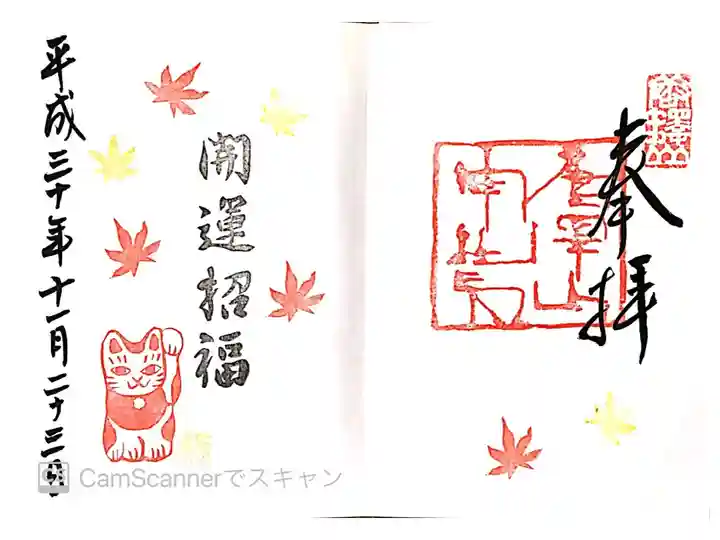 奉拝
唐澤山
唐澤山
神社
開運招福
平成三十年十一月二十三日
CamScannerでスキャン